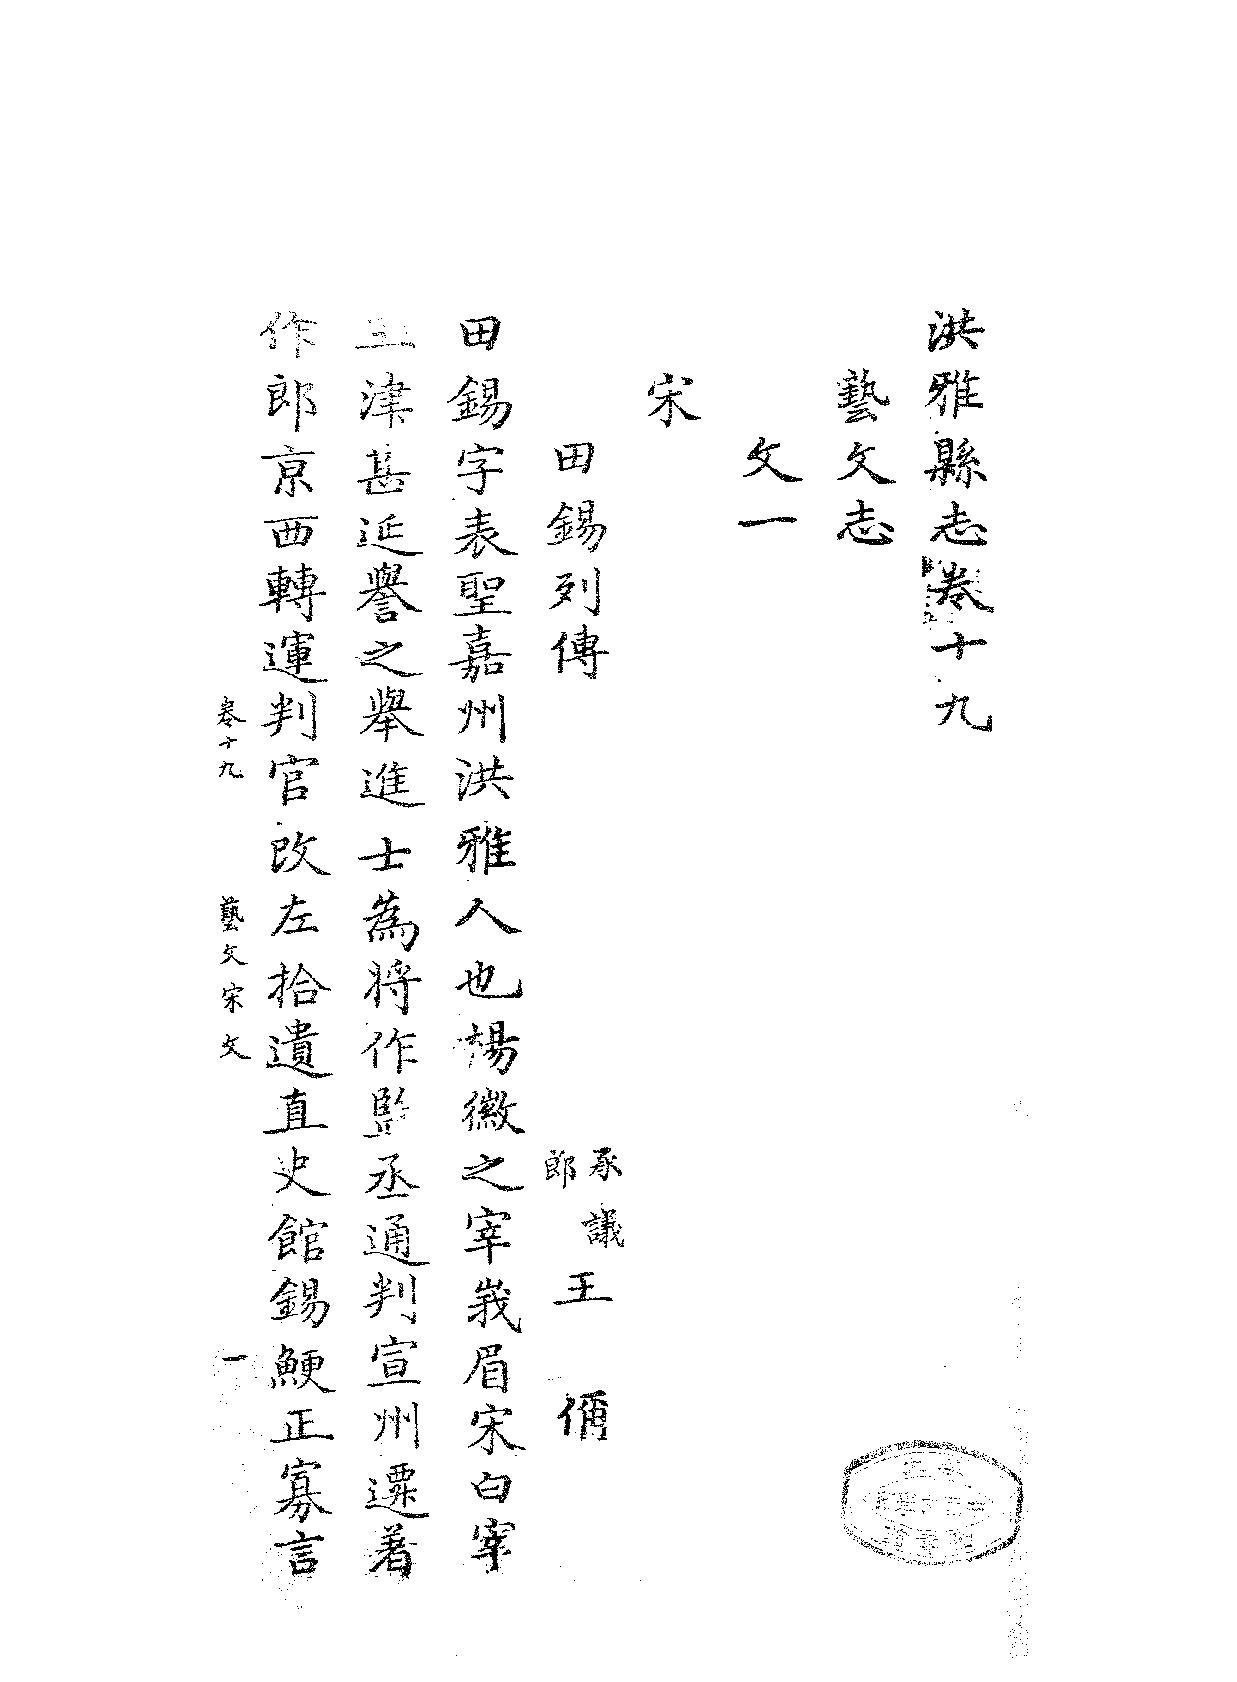 洪雅縣志卷十九
藝文志
文一
宋
田錫列傳 承議郎 王 偁
田錫字表聖嘉州洪雅人也楊徽之宰峩眉宋白宰
玉津甚延譽之舉進士為將作監丞通判宣州遷著
作郎京西轉運判官改左拾遺直史館錫鯁正寡言
卷十九 藝文宋文 一